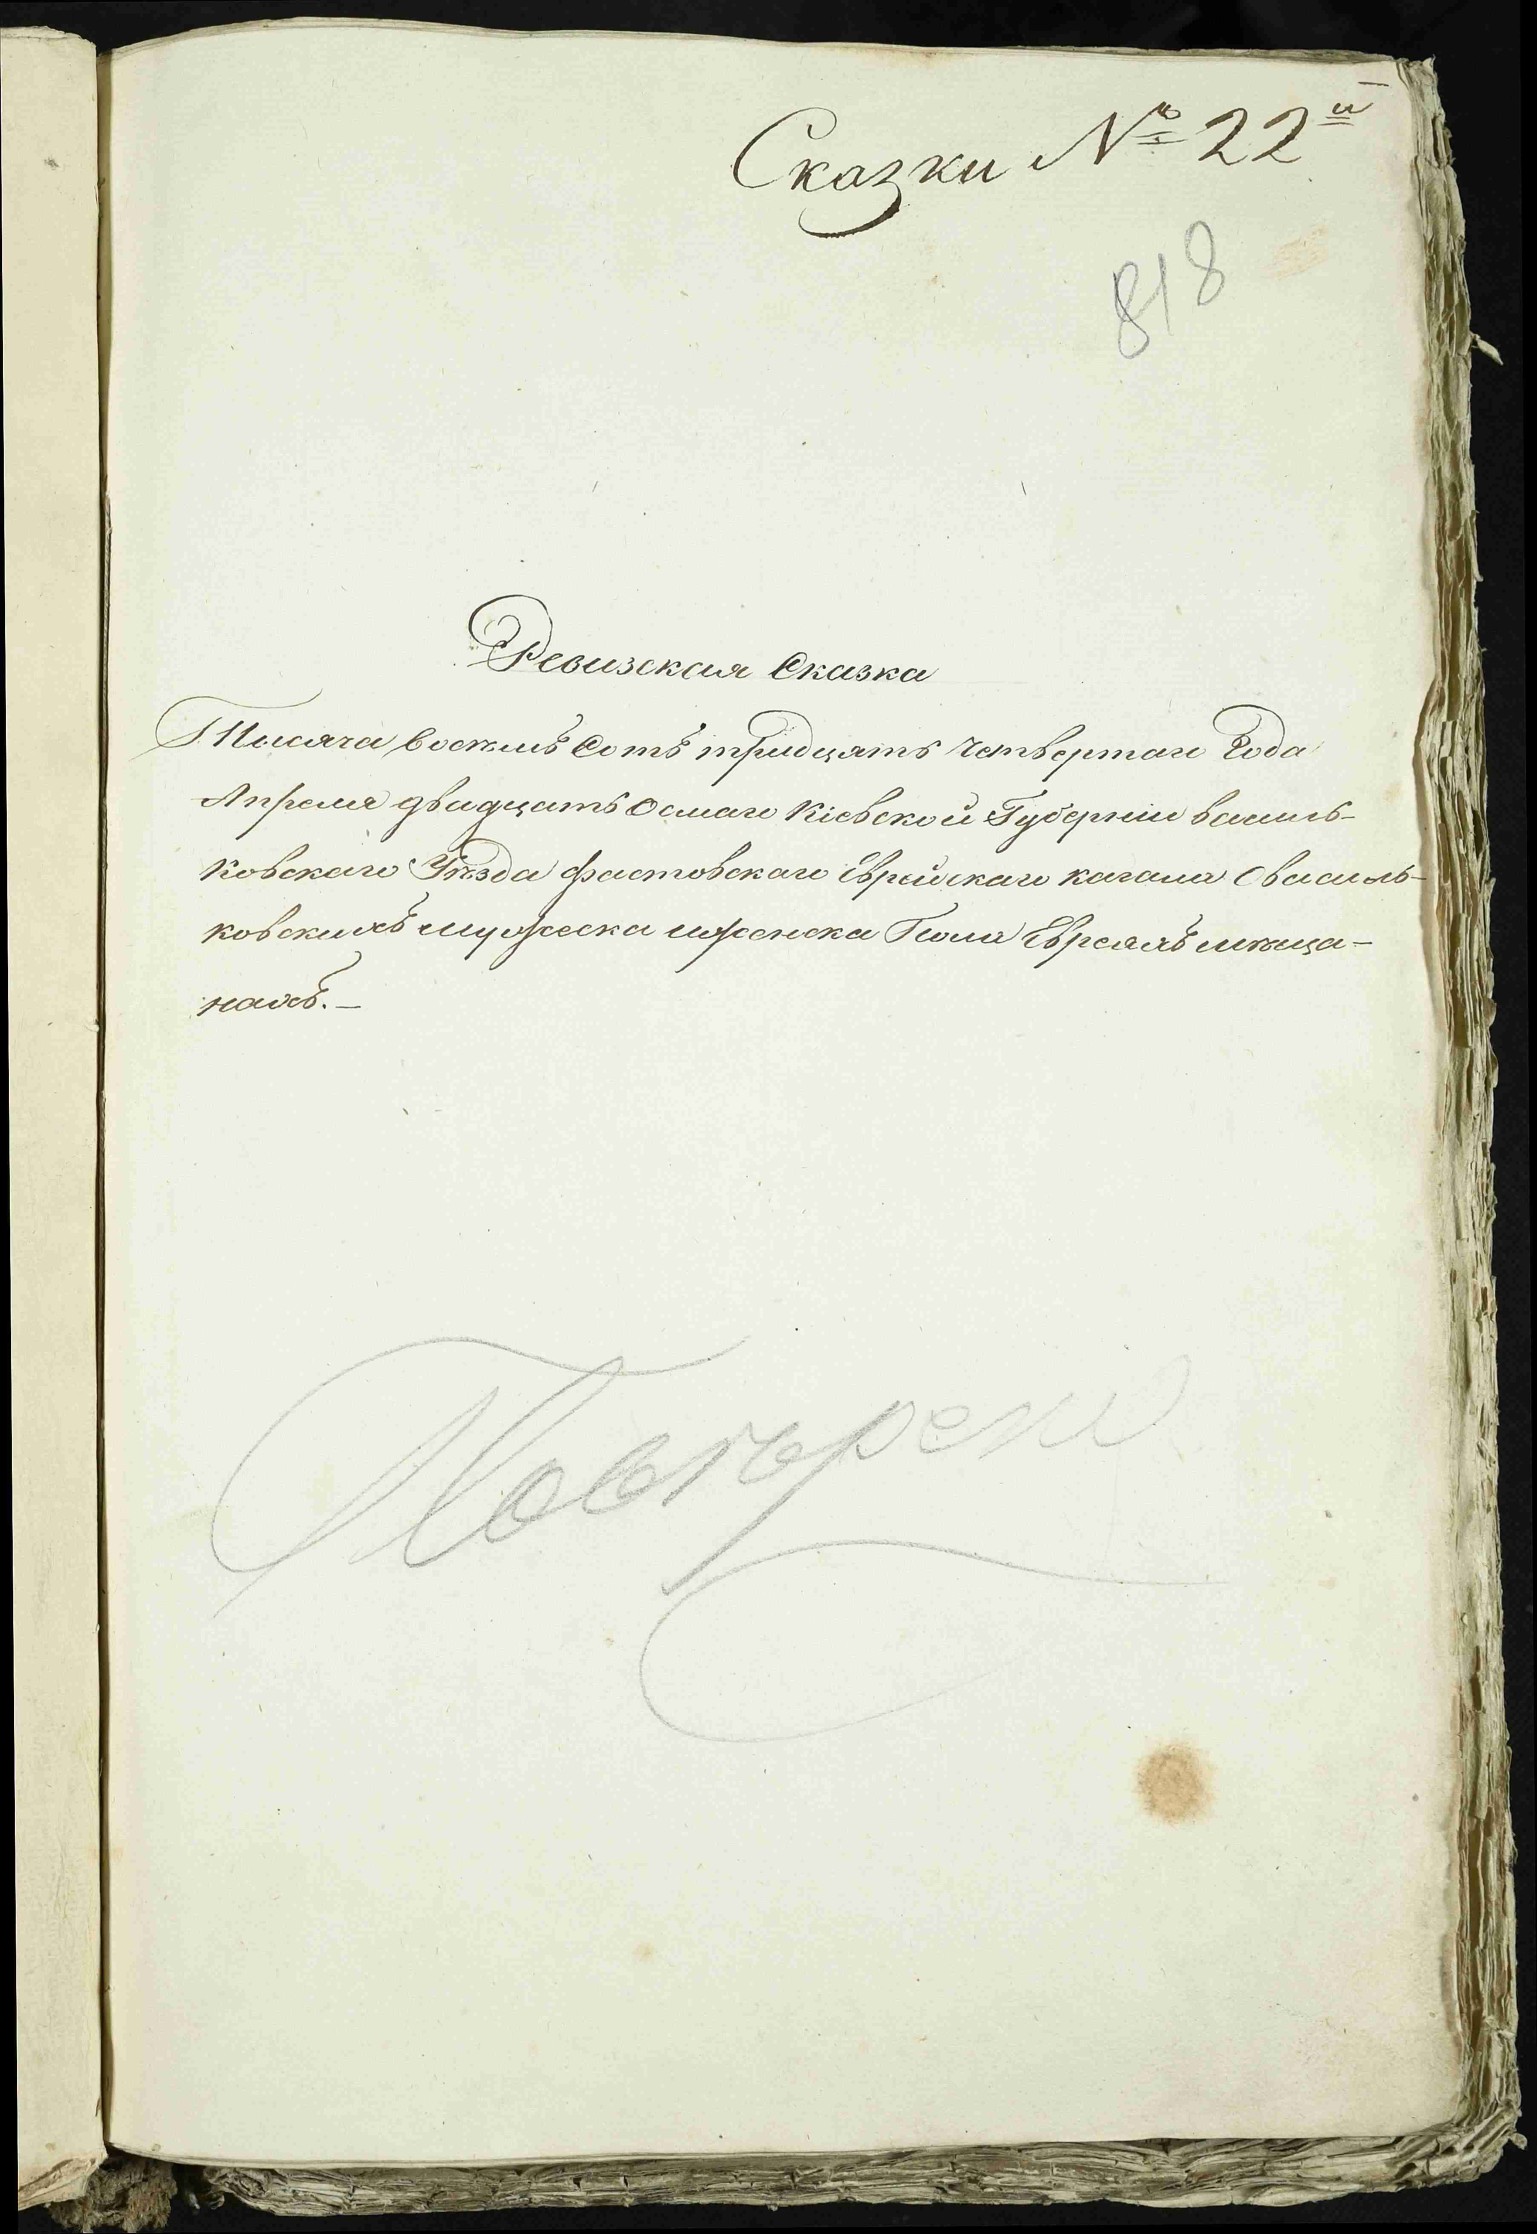 Сказки № 22й
818
Ревизская Сказка
Тысяча восемь Сотъ тридцать четвертаго Года
Апреля двадцать осмаго Кіевской Губерніи василь-
ковскаго Уѣзда фастовскаго Еврейскаго кагала Овасиль-
ковскихъ мужеска иженска Пола Евреяхъ мѣща-
нахъ.-
Повѣрено